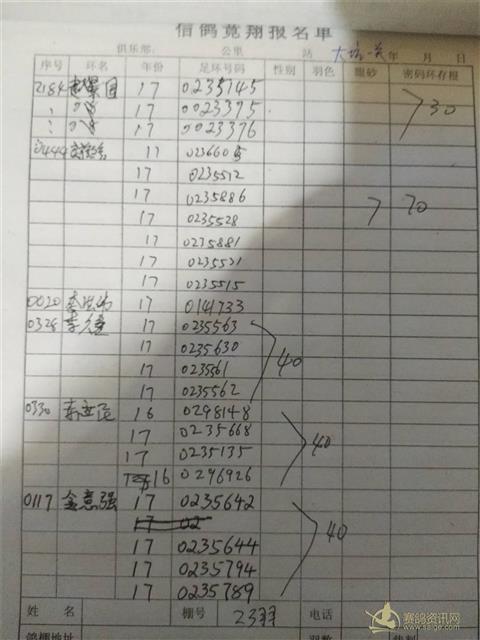 信鸽竞翔报名单
俱乐部: 公里 站 年 月 日
序号 环名 年份 足环号码 性别 羽色 眼砂 密码环存根
2184 17 0235745
17 0023395 30
17 0023376
0444 17 0236605
17 0235512
17 0235886
17 0235528 7 70
17 0235881
17 0235521
17 0235515
0020 17 0141733
0328 17 0235563
17 0235630
17 023561 40
17 0235562
0330 16 0298148
17 0235668
17 0235135 40
16 0296926
0117 金意强 17 0235642
17 02
17 0235644 40
17 0235794
17 0235789
姓名 棚号 233羽 电话
鸽棚地址
赛鸽资讯网
www.saige.com